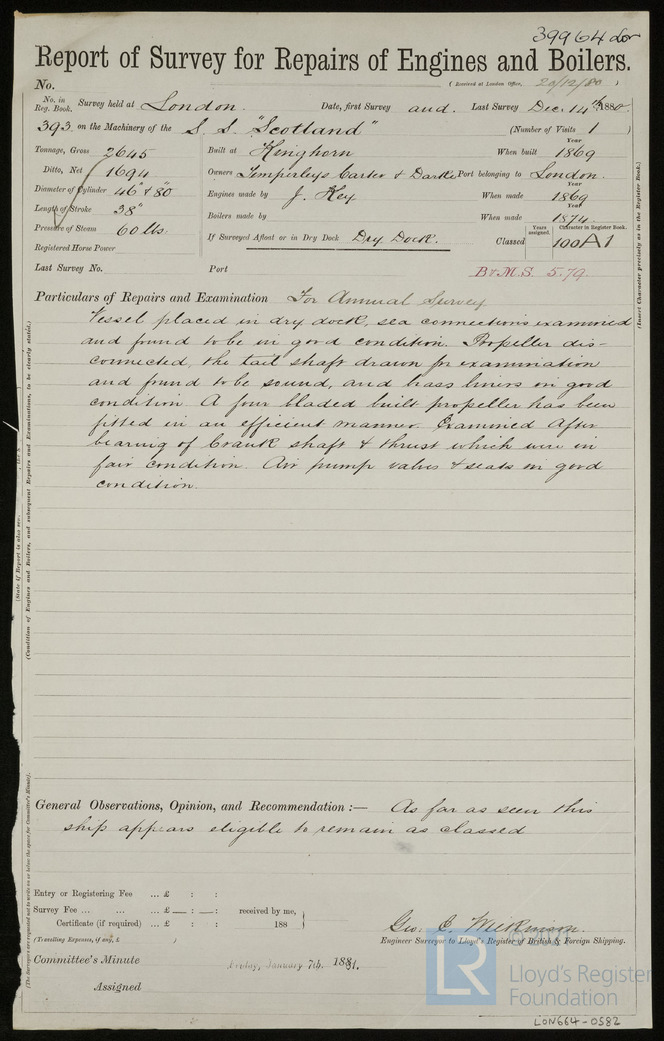 39964 Lon
Report of Survey for Repairs of Engines and Boilers.
No. (Received at London Office, 20/12/80 )
No. in Reg. Book. Survey held at London. Date, first Survey and Last Survey Dec. 14th 1880
393 on the Machinery of the S. S. "Scotland" (Number of Visits 1 )
Tonnage, Gross 2645 Built at Kinghorn When built Year 1869
Ditto, Net 1694 Owners Temperleys Carter & Darke Port belonging to London.
Diameter of Cylinder 46" & 80 Engines made by J. Key When made Year 1869
Length of Stroke 38" Boilers made by When made Year 1874
Pressure of Steam 60 lbs. If Surveyed Afloat or in Dry Dock Dry Dock. Classed Years assigned. Character in Register Book. 100A1
Registered Horse Power
Last Survey No. Port B&M.S. 5.79.
Particulars of Repairs and Examination For Annual Survey
Vessel placed in dry dock, sea connections examined
and found to be in good condition. Propeller dis-
connected, the tail shaft drawn for examination
and found to be sound, and brass liners in good
condition. A four bladed built propeller has been
fitted in an efficient manner. Examined After
bearing of Crank shaft & thrust which were in
fair condition. Air pump valves & seats in good
condition.
General Observations, Opinion, and Recommendation :— As far as seen this
ship appears eligible to remain as classed
Entry or Registering Fee ... £ : :
Survey Fee ... ... ... £ — : — : received by me,
Certificate (if required) ... £ : : 188
(Travelling Expenses, if any, £ )
Geo. C. Wilkinson.
Engineer Surveyor to Lloyd's Register of British & Foreign Shipping.
Committee's Minute Friday, January 7th, 1881.
Assigned
(Insert Character precisely as in the Register Book.)
(State if Report is also sent
(Condition of Engines and Boilers, and subsequent Repairs and Examinations, to be clearly stated.)
(The Surveyors are requested not to write on or below the space for Committee's Minute).
© 2021
LR
Lloyd's Register
Foundation
LON664-0582